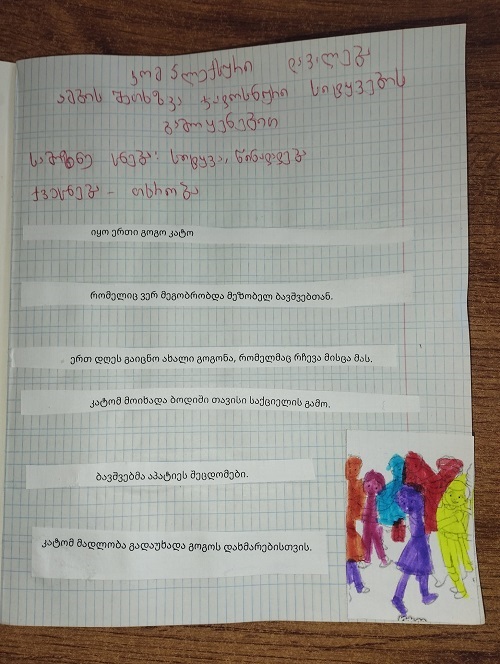 კომპლექსური დავალება
ამბის შეთხზვა ჯადოსნური სიტყვების
გამოყენებით
სამიზნე ცნება: სიტყვა, წინადადება
ქვეცნება - თხრობა
იყო ერთი გოგო კატო
რომელიც ვერ მეგობრობდა მეზობელ ბავშვებთან.
ერთ დღეს გაიცნო ახალი გოგონა, რომელმაც რჩევა მისცა მას.
კატომ მოიხადა ბოდიში თავისი საქციელის გამო.
ბავშვებმა აპატიეს შეცდომები.
კატომ მადლობა გადაუხადა გოგოს დახმარებისთვის.